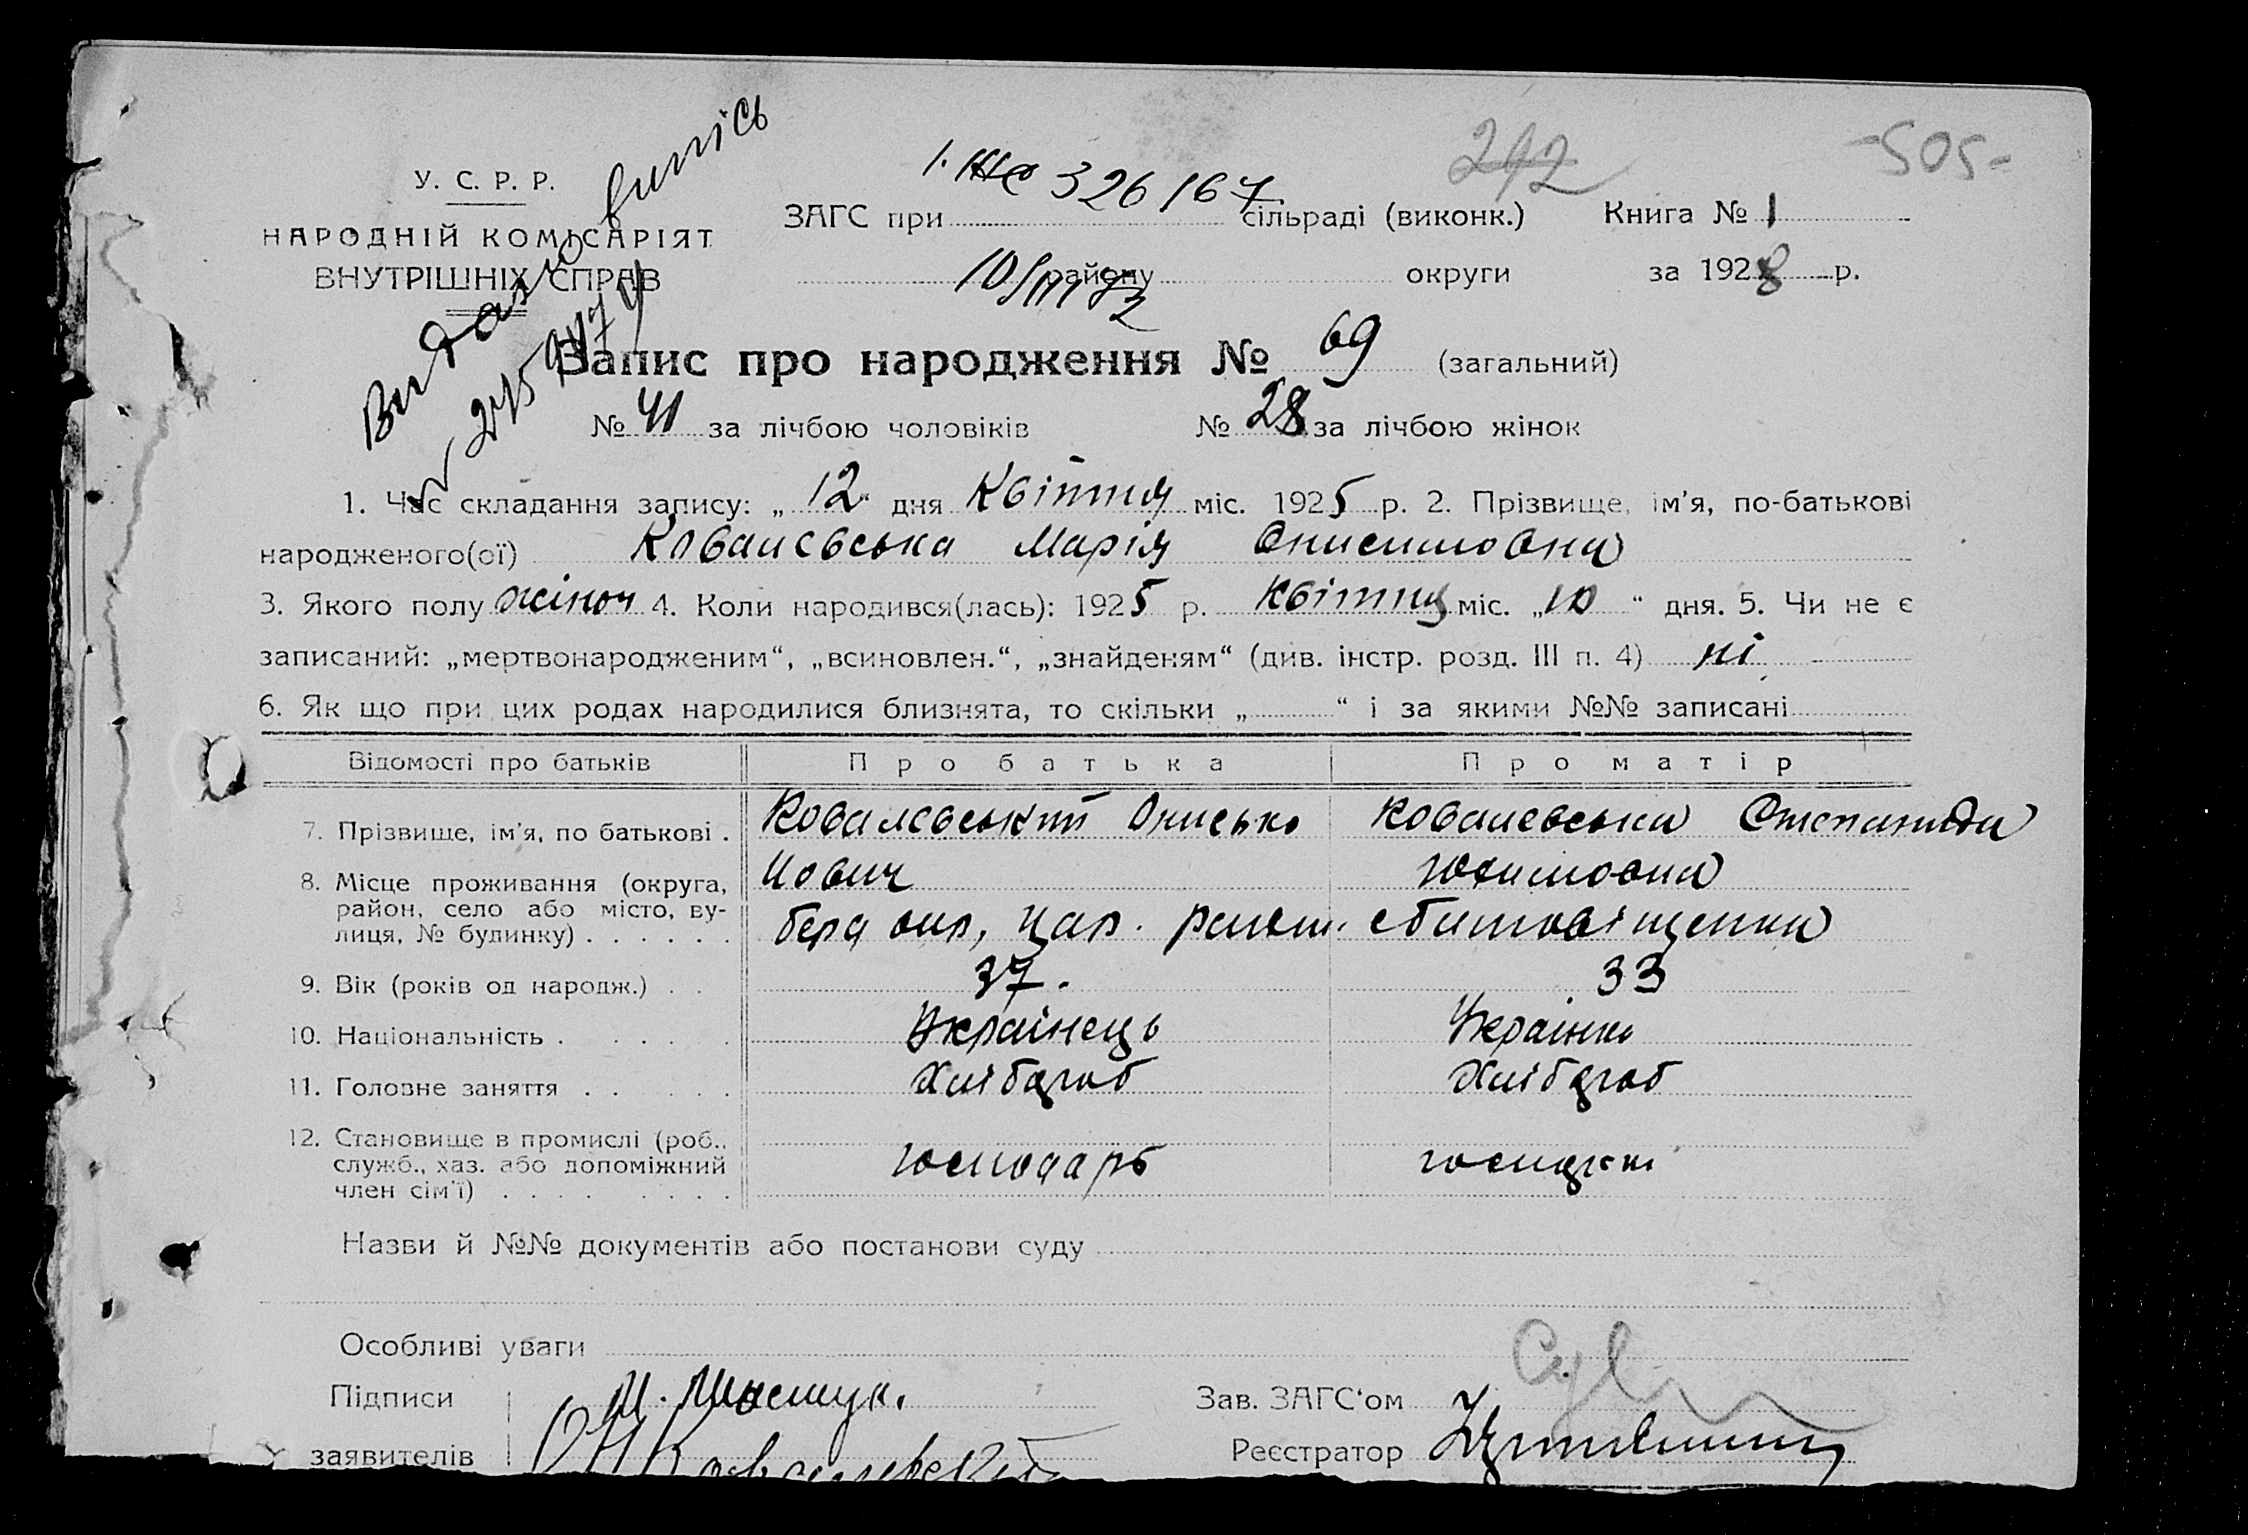 242 -505-
Видано випісь
У. С. Р. Р.
НАРОДНІЙ КОМІСАРІЯТ
ВНУТРІШНІХ СПРАВ
326167
ЗАГС при сільраді (виконк.) Книга № 1
району округи за 1928 р.
Запис про народження № 69 (загальний)
№ 41 за лічбою чоловіків № 28 за лічбою жінок
1. Час складання запису: „ 12 " дня Квітня міс. 1925 р. 2. Прізвище, ім'я, по-батькові
народженого(ої) Ковалевська Марія Онисимовна
3. Якого полу жіноч 4. Коли народився(лась): 1925 р. Квітня міс. „10 “ дня. 5. Чи не є
записаний: „мертвонародженим“, „всиновлен.“, „знайденям“ (див. інстр. розд. III п. 4) ні
6. Як що при цих родах народилися близнята, то скільки „ “ і за якими №№ записані
Відомості про батьків Про батька Про матір
7. Прізвище, ім'я, по батькові . Ковалевський Онисько Ковалевська Степанида
8. Місце проживання (округа, район, село або місто, вулиця, № будинку) . . . . . .
9. Вік (років од народж.) . . 37. 33
10. Національність . . . . . Українець Українка
11. Головне заняття . . . . . Хлібороб Хлібороб
12. Становище в промислі (роб.,
служб., хаз. або допоміжний господарь
член сім'ї) . . . . . . . .
Назви й №№ документів або постанови суду
Особливі уваги
Підписи Зав. ЗАГС'ом
заявителів Реєстратор